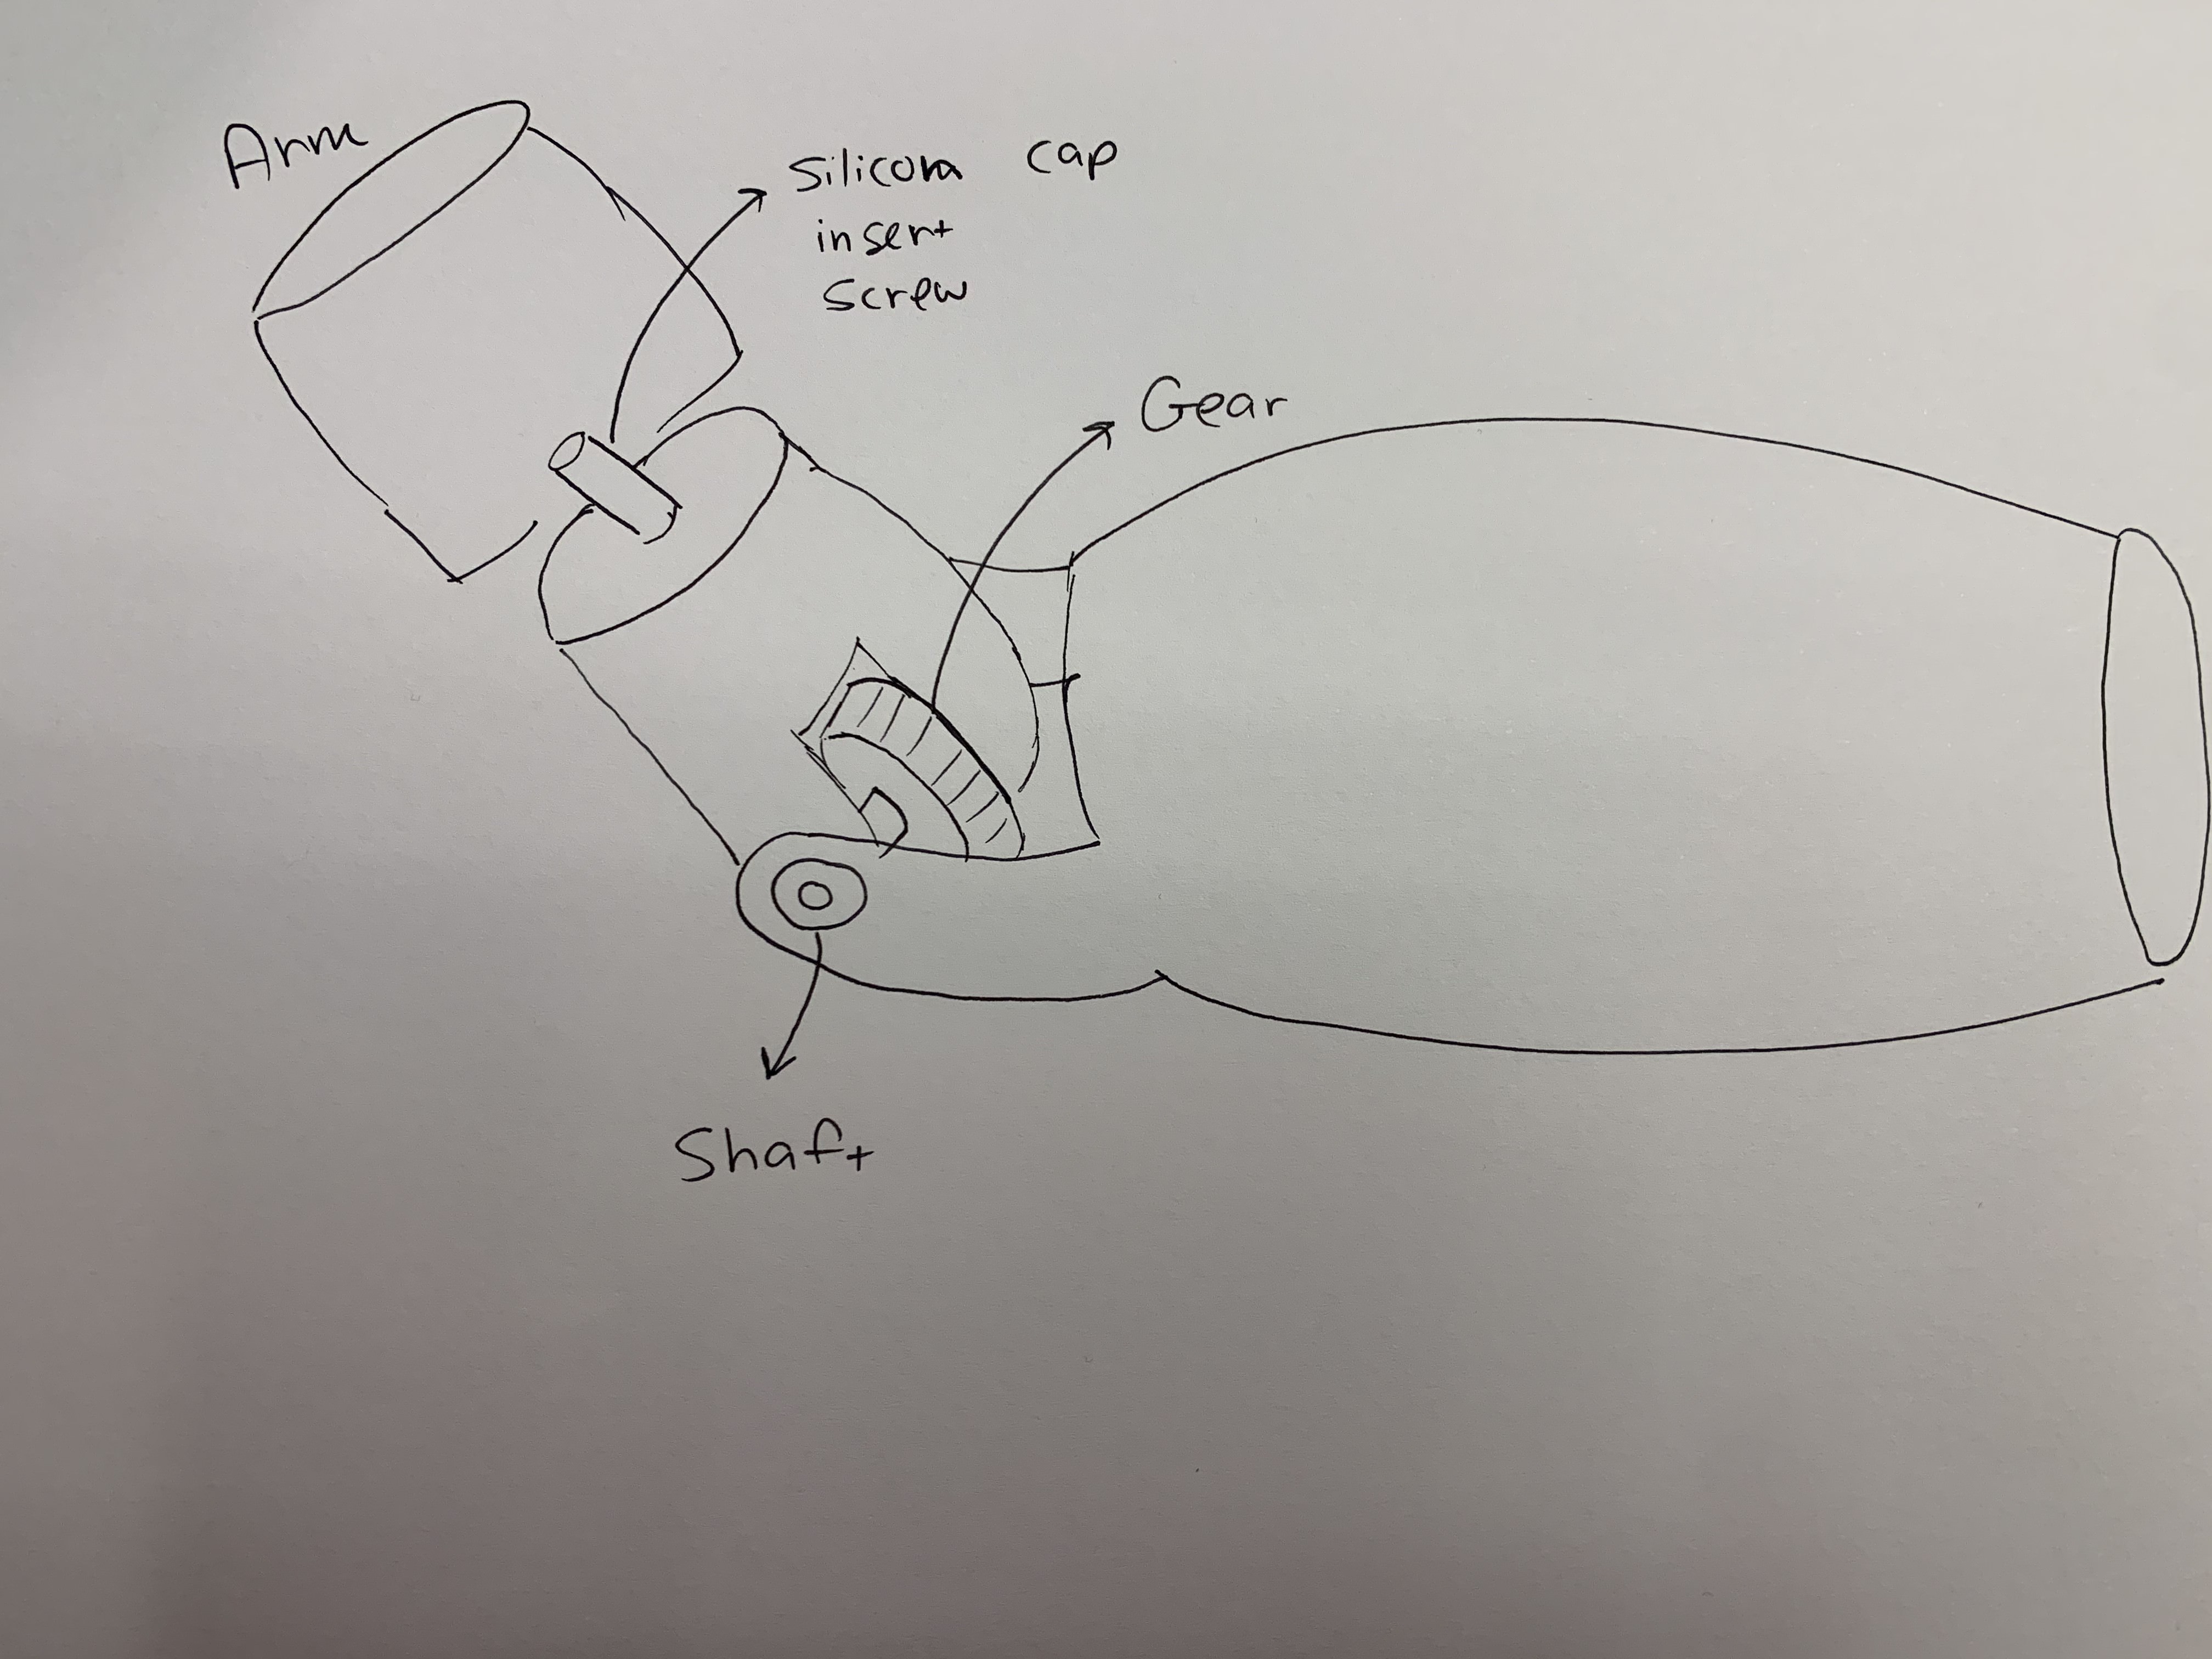 Arm
Silicon cap
insert
screw
Gear
Shaft